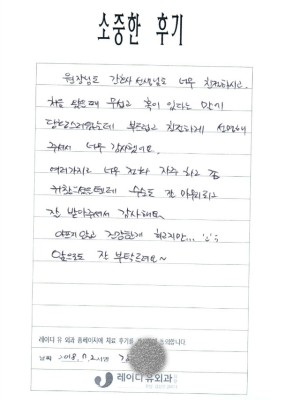 소중한 후기
원장님도 간호사 선생님도 너무 친절하시고.
처음 왔을때 무섭고 혹이 있다는 말이
당황스러웠는데 부드럽고 친절하게 설명해
주셔서 너무 감사했어요.
여러가지로 너무 전화 자주 하고 좀
귀찮으셨을텐데 수술도 잘 마무리하고
잘 받아주셔서 감사해요
아프지않고 건강한게 최고지만...
앞으로도 잘 부탁드려요~
레이디 유 외과 홈페이지에 치료 후기를
날짜 2018. 11. 2 서명
레이디유외과